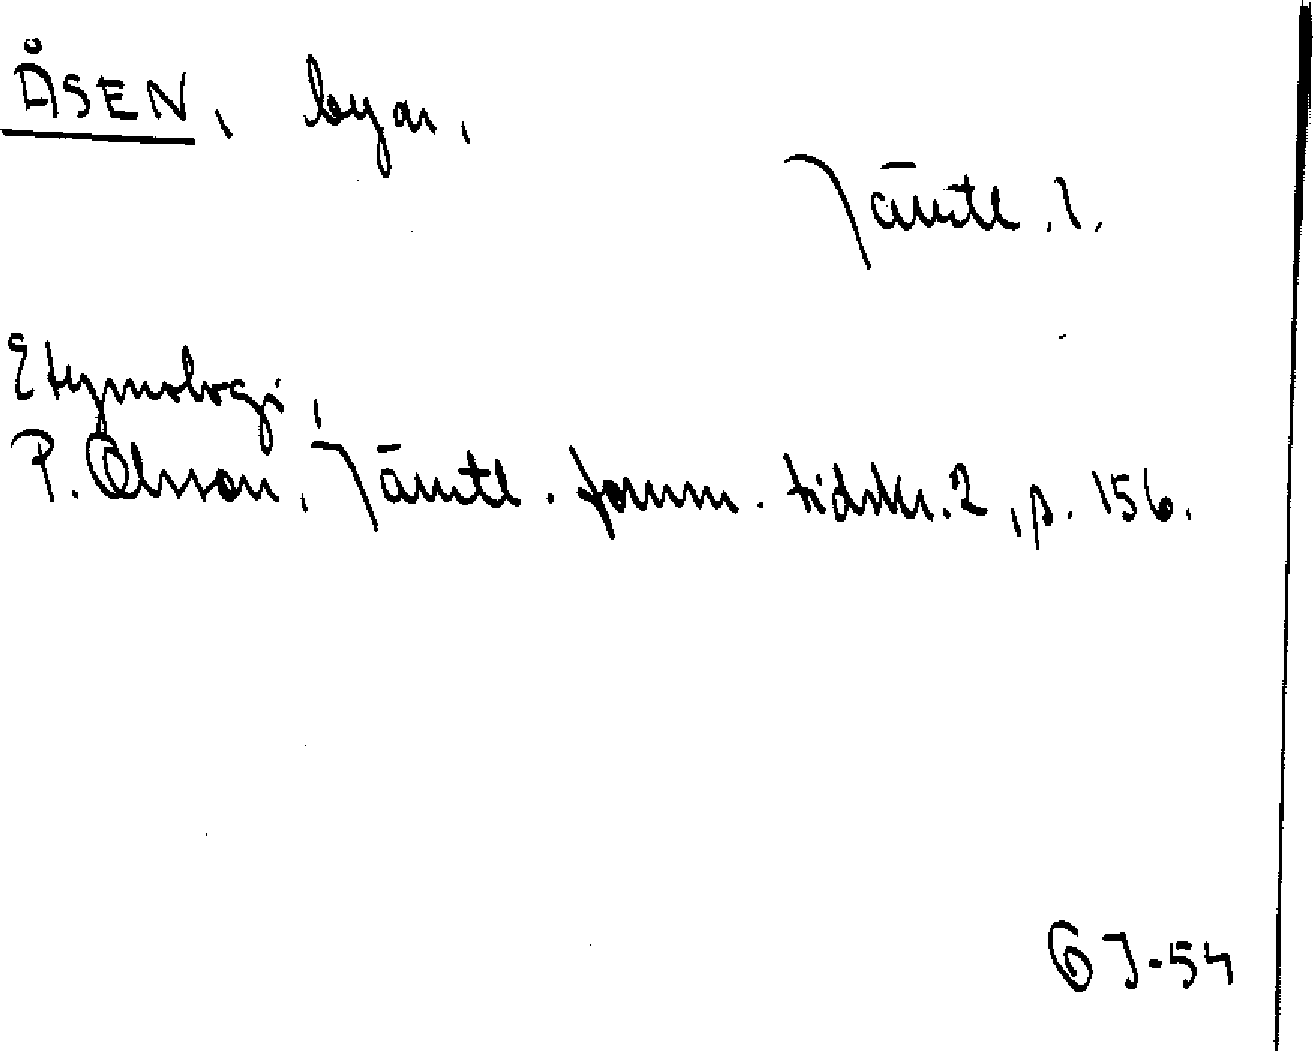 ÅSEN, byar,
Jämtl. l.
Etymologi,
P. Olsson, Jämtl. fornm. tidskr. 2, p. 156.
GJ-54